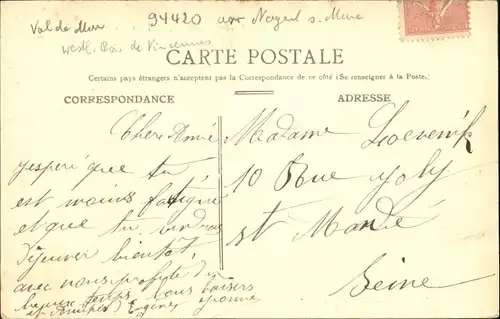 Val de Mar
94420 arr Nogent s. Marne
westl. Bois de Vincennes
CARTE POSTALE
Certains pays étrangers n'acceptent pas la Correspondance de ce côté (Se renseigner à la Poste.)
CORRESPONDANCE
ADRESSE
Chère Amie
j'espère que tu
est moins fatigué
et que tu viendras
déjeuner bientôt,
avec nous profite du
beau temps, bons baisers
Eugénie Yvonne
Madame
10 Rue Joly
St Mandé
Seine